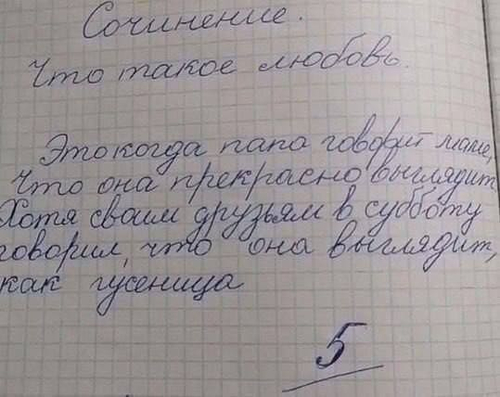 Сочинение.
Что такое любовь.
Это когда папа говорит маме,
что она прекрасно выглядит
Хотя своим друзьям в субботу
говорил, что она выглядит,
как гусеница
5